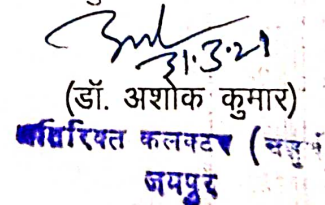 31.3.21
(डॉ. अशोक कुमार)
अतिरिक्त कलक्टर (चतुर्थ
जयपुर